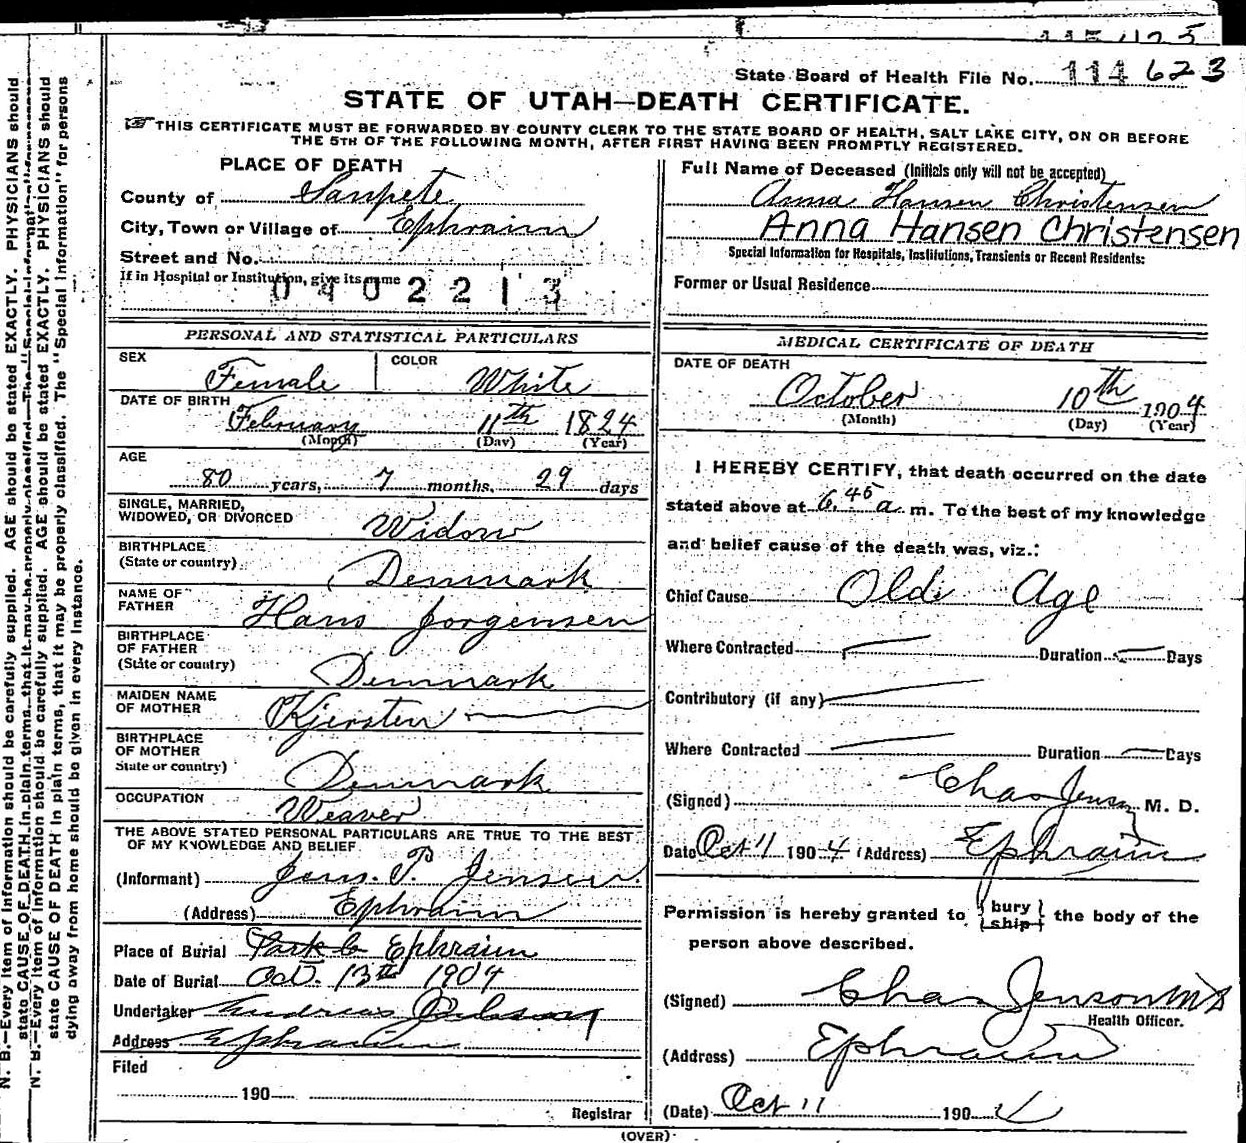 State Board of Health File No. 114623
STATE OF UTAH—DEATH CERTIFICATE.
THIS CERTIFICATE MUST BE FORWARDED BY COUNTY CLERK TO THE STATE BOARD OF HEALTH, SALT LAKE CITY, ON OR BEFORE
THE 5TH OF THE FOLLOWING MONTH, AFTER FIRST HAVING BEEN PROMPTLY REGISTERED.
PLACE OF DEATH
County of Sanpete
City, Town or Village of Ephraim
Street and No.
If in Hospital or Institution, give its name
0402213
PERSONAL AND STATISTICAL PARTICULARS
SEX Female COLOR White
DATE OF BIRTH
February 11th 1824
(Month) (Day) (Year)
AGE
80 years, 7 months, 29 days
SINGLE, MARRIED,
WIDOWED, OR DIVORCED Widow
BIRTHPLACE
(State or country) Denmark
NAME OF
FATHER Hans Jorgensen
BIRTHPLACE
OF FATHER
(State or country) Denmark
MAIDEN NAME
OF MOTHER Kjersten —
BIRTHPLACE
OF MOTHER
State or country) Denmark
OCCUPATION Weaver
THE ABOVE STATED PERSONAL PARTICULARS ARE TRUE TO THE BEST
OF MY KNOWLEDGE AND BELIEF
(Informant) Jens. P. Jensen.
(Address) Ephraim
Place of Burial Park C Ephraim
Date of Burial Oct. 13th 1904
Undertaker Andreas
Address Ephraim
Filed
190
Registrar
Full Name of Deceased (Initials only will not be accepted)
Anna Hansen Christensen
Anna Hansen Christensen
Special Information for Hospitals, Institutions, Transients or Recent Residents:
Former or Usual Residence
MEDICAL CERTIFICATE OF DEATH
DATE OF DEATH
October 10th 1904
(Month) (Day) (Year)
I HEREBY CERTIFY, that death occurred on the date
stated above at 6.45 a. m. To the best of my knowledge
and belief cause of the death was, viz.:
Chief Cause Old Age
Where Contracted — Duration — Days
Contributory (if any) —
Where Contracted — Duration — Days
(Signed) Chas Jenson M. D.
Date Oct 11 1904 (Address) Ephraim
Permission is hereby granted to { bury ship } the body of the
person above described.
(Signed) Chas Jenson MD
Health Officer.
(Address) Ephraim
(Date) Oct 11 190 4
(OVER)
N. B.—Every item of Information should be carefully supplied. AGE should be stated EXACTLY. PHYSICIANS should
state CAUSE OF DEATH in plain terms, that it may be properly classified. The "Special Information" for persons
N. B.—Every item of Information should be carefully supplied. AGE should be stated EXACTLY. PHYSICIANS should
state CAUSE OF DEATH in plain terms, that it may be properly classified. The "Special Information" for persons
dying away from home should be given in every instance.